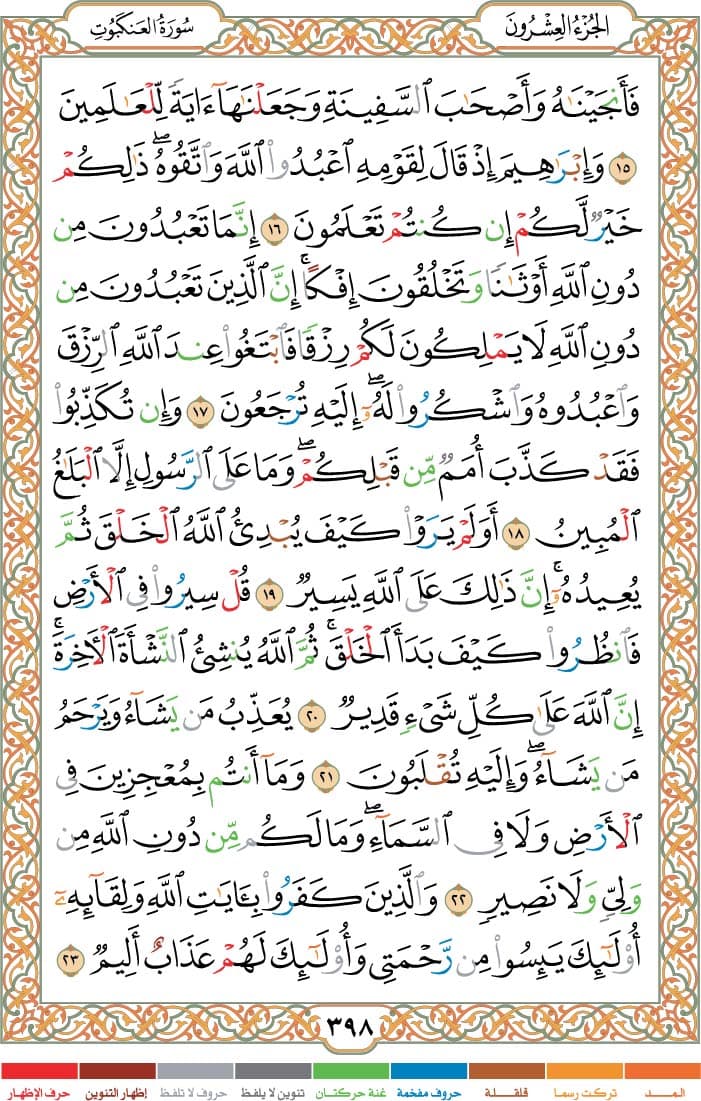 الجُزْءُ العِشْرُونَ
سُورَةُ العَنكَبُوتِ
فَأَنجَيْنَٰهُ وَأَصْحَٰبَ ٱلسَّفِينَةِ وَجَعَلْنَٰهَآ ءَايَةً لِّلْعَٰلَمِينَ
١٥ وَإِبْرَٰهِيمَ إِذْ قَالَ لِقَوْمِهِ ٱعْبُدُوا۟ ٱللَّهَ وَٱتَّقُوهُ ۖ ذَٰلِكُمْ
خَيْرٌ لَّكُمْ إِن كُنتُمْ تَعْلَمُونَ ١٦ إِنَّمَا تَعْبُدُونَ مِن
دُونِ ٱللَّهِ أَوْثَٰنًا وَتَخْلُقُونَ إِفْكًا ۚ إِنَّ ٱلَّذِينَ تَعْبُدُونَ مِن
دُونِ ٱللَّهِ لَا يَمْلِكُونَ لَكُمْ رِزْقًا فَٱبْتَغُوا۟ عِندَ ٱللَّهِ ٱلرِّزْقَ
وَٱعْبُدُوهُ وَٱشْكُرُوا۟ لَهُۥٓ ۖ إِلَيْهِ تُرْجَعُونَ ١٧ وَإِن تُكَذِّبُوا۟
فَقَدْ كَذَّبَ أُمَمٌ مِّن قَبْلِكُمْ ۖ وَمَا عَلَى ٱلرَّسُولِ إِلَّا ٱلْبَلَٰغُ
ٱلْمُبِينُ ١٨ أَوَلَمْ يَرَوْا۟ كَيْفَ يُبْدِئُ ٱللَّهُ ٱلْخَلْقَ ثُمَّ
يُعِيدُهُۥٓ ۚ إِنَّ ذَٰلِكَ عَلَى ٱللَّهِ يَسِيرٌ ١٩ قُلْ سِيرُوا۟ فِى ٱلْأَرْضِ
فَٱنظُرُوا۟ كَيْفَ بَدَأَ ٱلْخَلْقَ ۚ ثُمَّ ٱللَّهُ يُنشِئُ ٱلنَّشْأَةَ ٱلْءَاخِرَةَ ۚ
إِنَّ ٱللَّهَ عَلَىٰ كُلِّ شَىْءٍ قَدِيرٌ ٢٠ يُعَذِّبُ مَن يَشَآءُ وَيَرْحَمُ
مَن يَشَآءُ ۖ وَإِلَيْهِ تُقْلَبُونَ ٢١ وَمَآ أَنتُم بِمُعْجِزِينَ فِى
ٱلْأَرْضِ وَلَا فِى ٱلسَّمَآءِ ۖ وَمَا لَكُم مِّن دُونِ ٱللَّهِ مِن
وَلِىٍّ وَلَا نَصِيرٍ ٢٢ وَٱلَّذِينَ كَفَرُوا۟ بِـَٔايَٰتِ ٱللَّهِ وَلِقَآئِهِۦٓ
أُو۟لَٰٓئِكَ يَئِسُوا۟ مِن رَّحْمَتِى وَأُو۟لَٰٓئِكَ لَهُمْ عَذَابٌ أَلِيمٌ ٢٣
٣٩٨
المـــد تركت رسما قلقـــلة حروف مفخمة غنة حركتان تنوين لا يلفظ حروف لا تلفظ إظهار التنوين حرف الإظهار